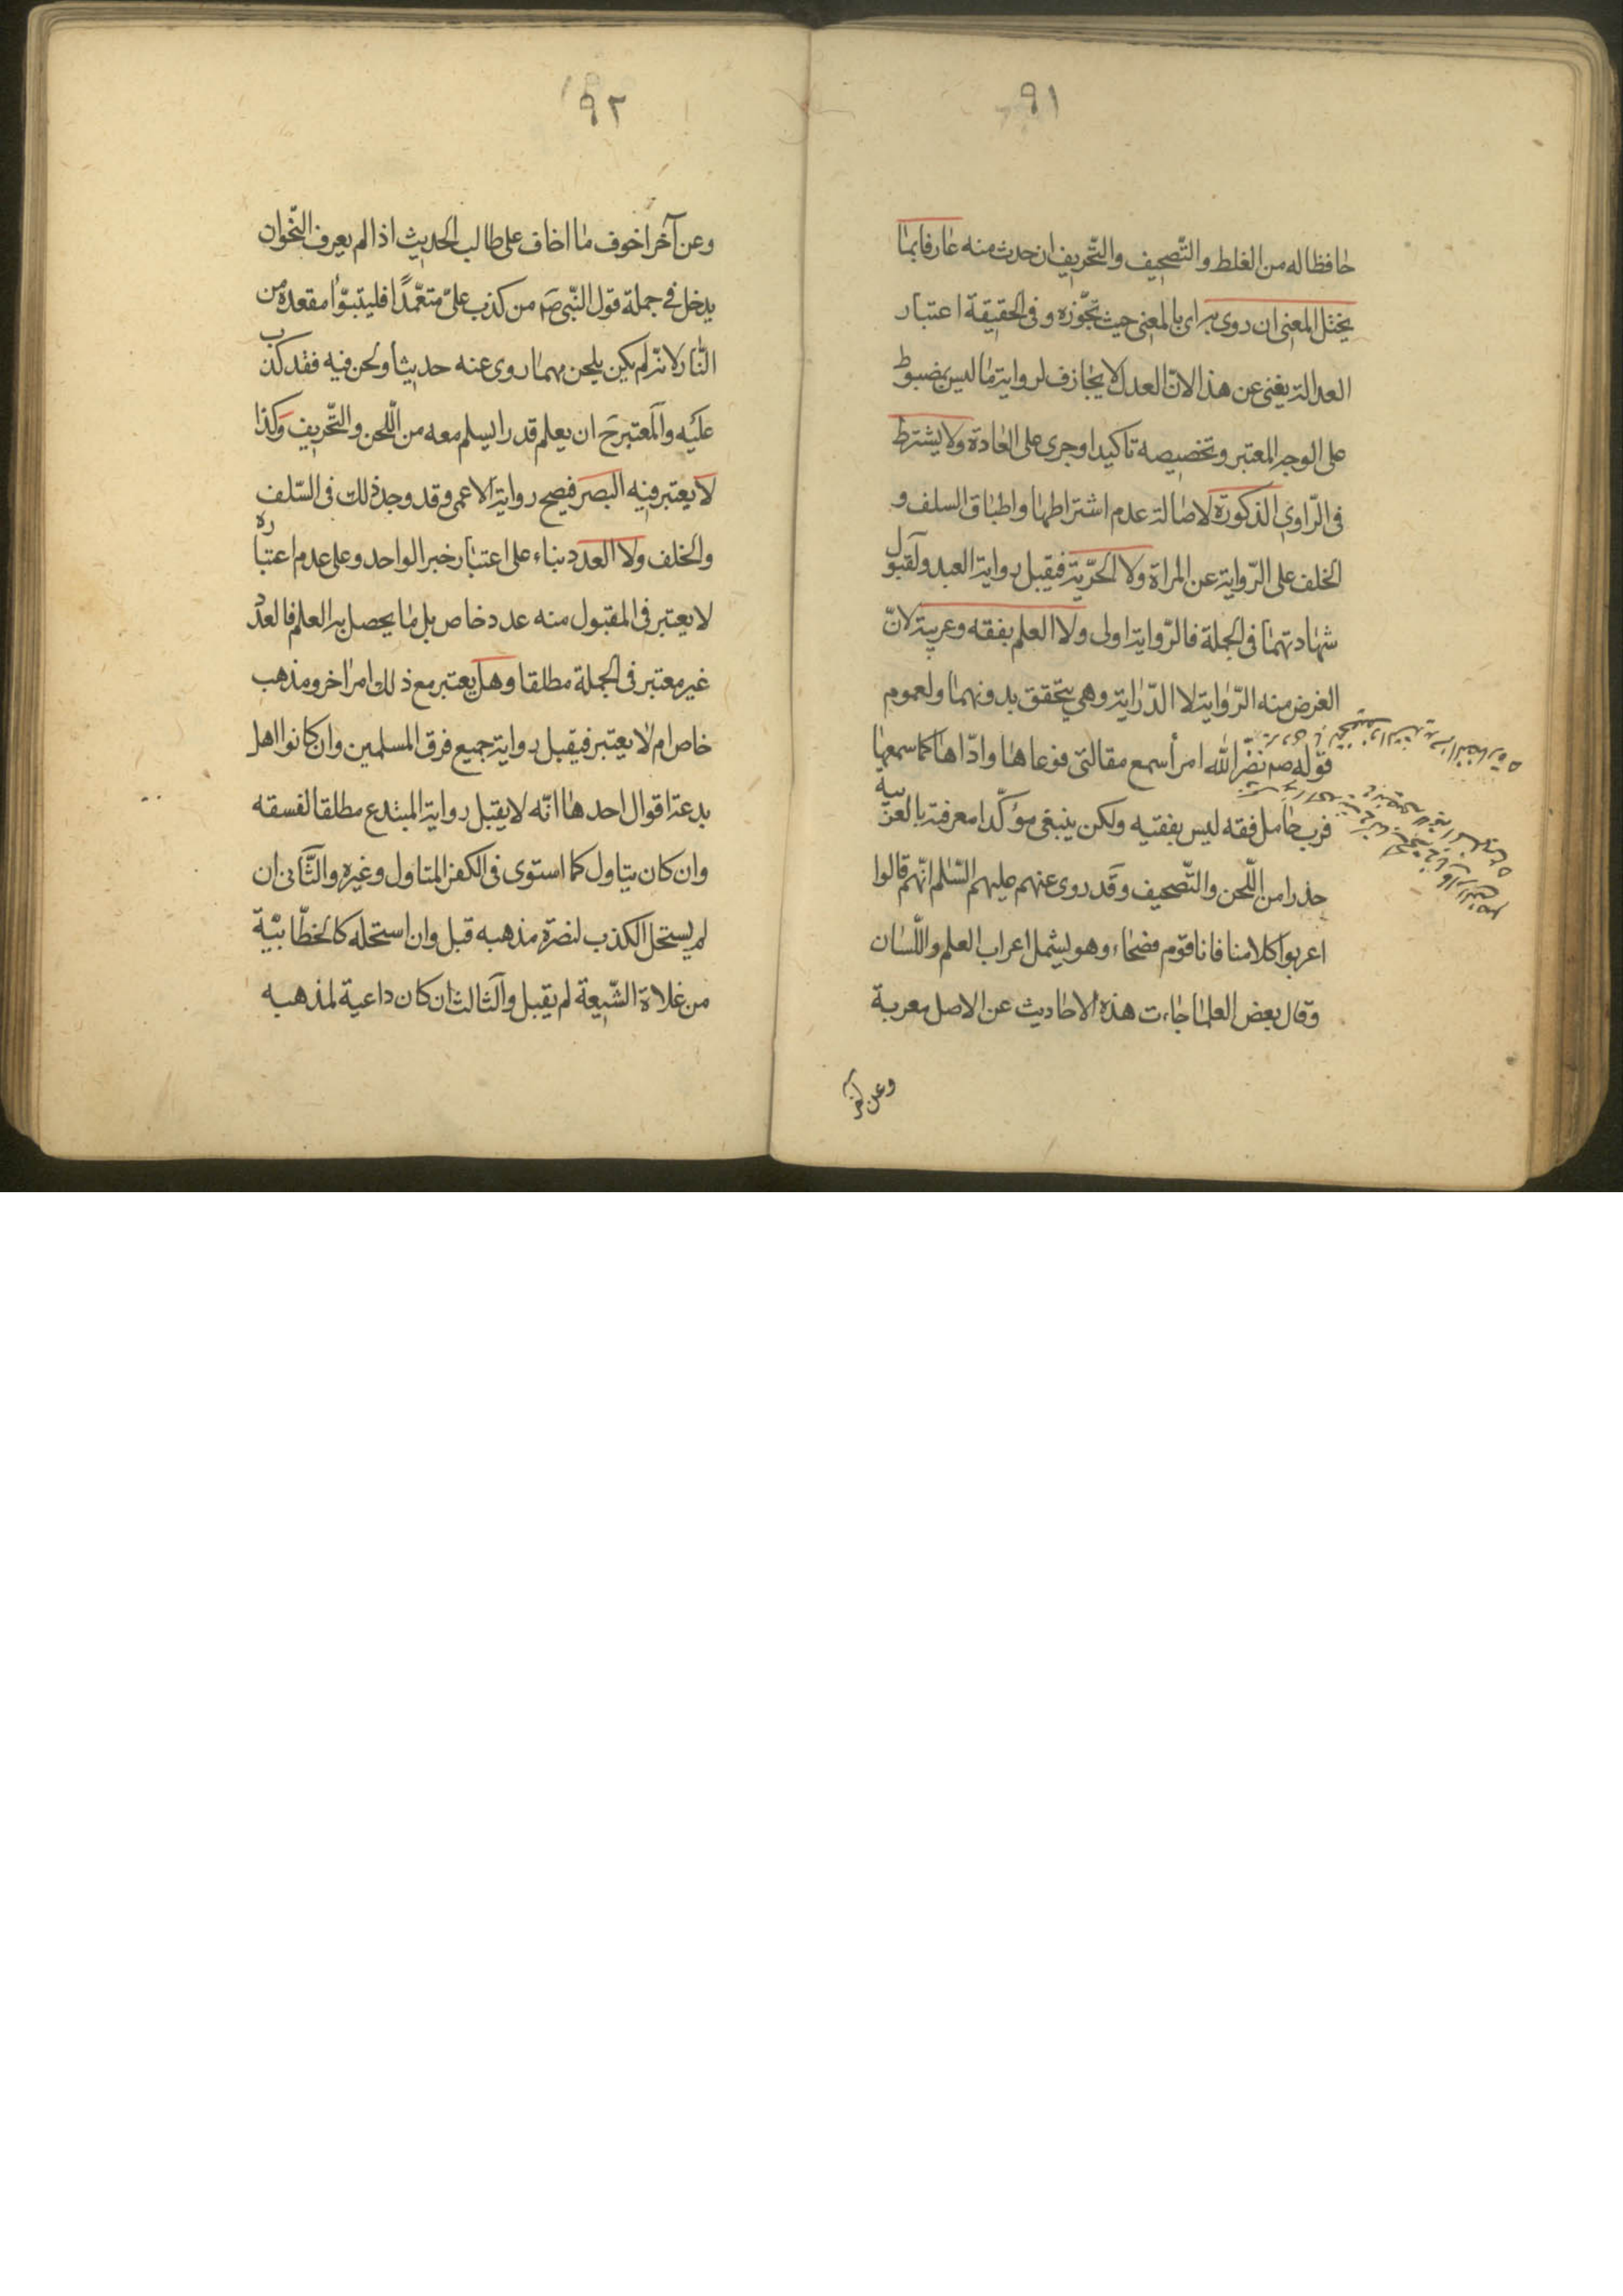 ٩١
حافظا له من الغلط والتّصحيف والتّحريف ان حدث منه عارفا بما
يختل المعنى ان روى به اى بالمعنى حيث تجّوزه وفى الحقيقة اعتبار
العدالة يغنى عن هذا لانّ العدل لا يجازف لرواية ما ليس بمضبوط
على الوجه المعتبر وتخصيصه تاكيد اوجرى على العادة ولا يشترط
فى الرّاوى الذكورة لاصالة عدم اشتراطها واطباق السلف و
الخلف على الرّواية عن المراة ولا الحرّية فيقبل رواية العبد ولقبول
شهادتهما فى الجملة فالرّواية اولى ولا العلم بفقه وعربية لانّ
الغرض منه الرّواية لا الدّراية وهى يتحقق بدونهما ولعموم
قوله صم نضّر الله امرأ سمع مقالتى فوعاها وادّاها كما سمعها
فرب حامل فقه ليس بفقيه ولكن ينبغى مؤكّدا معرفته بالعربية
حذرا من اللّحن والتّصحيف وقد روى عنهم عليهم السّلم انّهم قالوا
اعربوا كلامنا فانا قوم فصحاء وهو يشمل اعراب العلم واللّسان
وقال بعض العلما جاءت هذه الاحاديث عن الاصل معربة
وعن آخر
٩٢
وعن آخر اخوف ما اخاف على طالب الحديث اذا لم يعرف النّحو ان
يدخل فى جملة قول النّبى صم من كذب علىّ متعّمدًا فليتبوّأ مقعده من
النّار لانّه لم يكن يلحن مهما روى عنه حديثا ولحن فيه فقد كذب
عليه والمعتبر ح ان يعلم قدرا يسلم معه من اللّحن والتّحريف وكذا
لا يعتبر فيه البصر فيصح رواية الاعمى وقد وجد ذلك فى السّلف
والخلف ولا العدد بناء على اعتبار خبر الواحد وعلى عدم اعتباره
لا يعتبر فى المقبول منه عدد خاص بل ما يحصل به العلم فالعدد
غير معتبر فى الجملة مطلقا وهل يعتبر مع ذلك امر اخر ومذهب
خاص ام لا يعتبر فيقبل رواية جميع فرق المسلمين وان كانوا اهل
بدعة اقوال احدها انّه لا يقبل رواية المبتدع مطلقا لفسقه
وان كان يتاول كما استوى فى الكفر المتاول وغيره والثّانى ان
لم يستحل الكذب لنصرة مذهبه قبل وان استحله كالخطّابيّة
من غلاة الشّيعة لم يقبل والثالث ان كان داعية لمذهبه